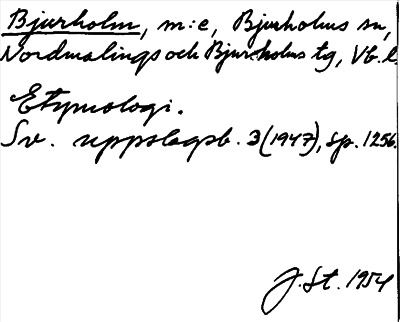 Bjurholm, m:e, Bjurholms sn,
Nordmalings och Bjurholms tg, Vb. l.
Etymologi.
Sv. uppslagsb. 3 (1947), sp. 1256.
J. St. 1954